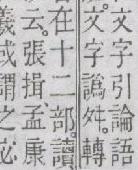 文字引論語
文字譌舛。轉
在十二部。讀
云。張揖、孟康
義或謂之